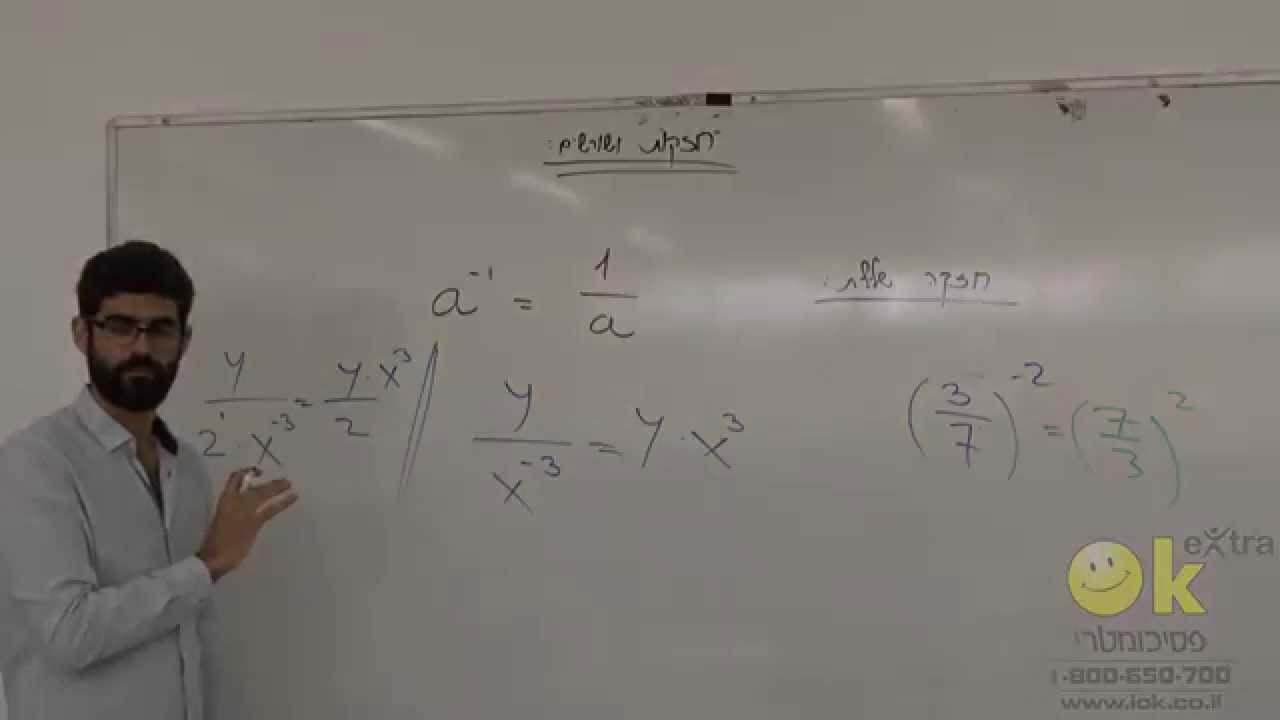 חזקות ושורשים:
חזקה שלילית:
a⁻¹ = 1/a
y/(2¹·x⁻³) = y·x³/2
y/x⁻³ = y·x³
(3/7)⁻² = (7/3)²
Ok extra
פסיכומטרי
1-800-650-700
www.iok.co.il